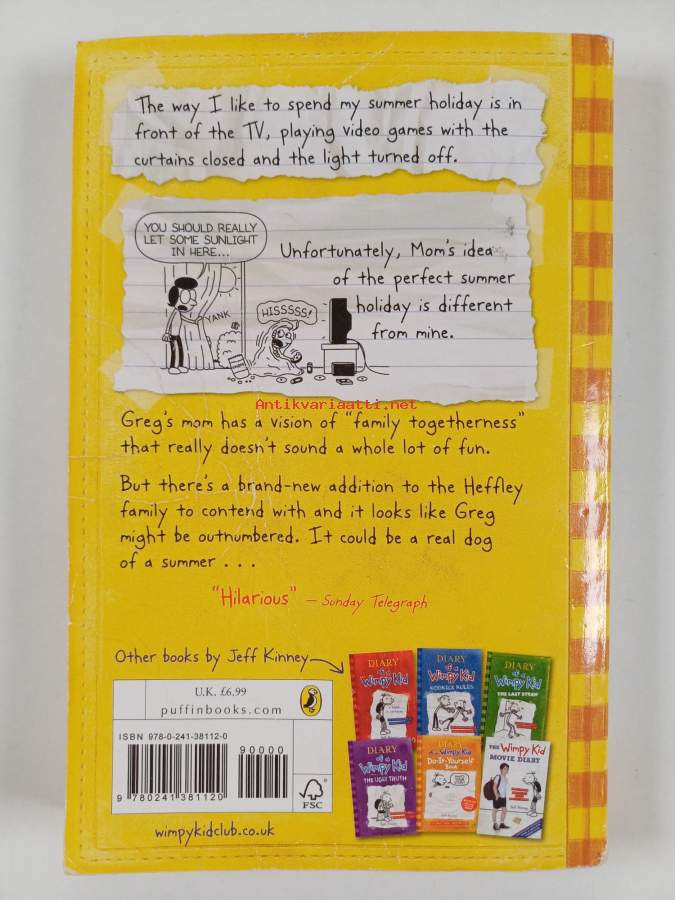 The way I like to spend my summer holiday is in
front of the TV, playing video games with the
curtains closed and the light turned off.
YOU SHOULD REALLY
LET SOME SUNLIGHT
IN HERE...
YANK
HISSSSS!
Unfortunately, Mom's idea
of the perfect summer
holiday is different
from mine.
Antikvariaatti.net
Greg's mom has a vision of "family togetherness"
that really doesn't sound a whole lot of fun.
But there's a brand-new addition to the Heffley
family to contend with and it looks like Greg
might be outnumbered. It could be a real dog
of a summer . . .
"Hilarious" – Sunday Telegraph
Other books by Jeff Kinney
U.K. £6.99
puffinbooks.com
ISBN 978-0-241-38112-0
90000
9 780241 381120
FSC
wimpykidclub.co.uk
DIARY
of a
Wimpy Kid
DIARY
of a
Wimpy Kid
RODRICK RULES
DIARY
of a
Wimpy Kid
THE LAST STRAW
DIARY
of a
Wimpy Kid
THE UGLY TRUTH
DIARY
of a Wimpy Kid
Do-It-Yourself
Book
THE Wimpy Kid
MOVIE DIARY